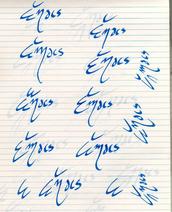 Emacs Emacs
Emacs Emacs Emacs
Emacs Emacs
Emacs Emacs Emacs
E Emacs E Emacs